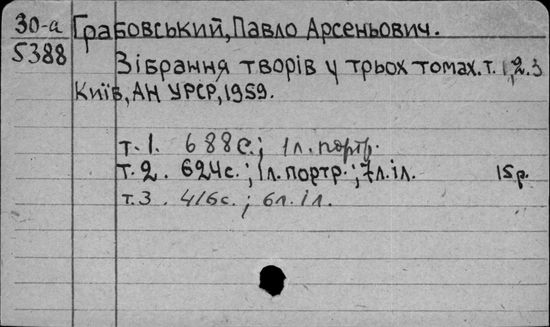 30-а Грабовський, Павло Арсеньович.
5388
Зібрання творів у трьох томах. т. 1, 2. 3
Київ, АН УРСР, 1959.
т. 1. 688с.; 1л. портр.
т. 2. 624с.; 1л. портр.; 7л. іл. 15р.
т. 3. 416с.; 6л. іл.